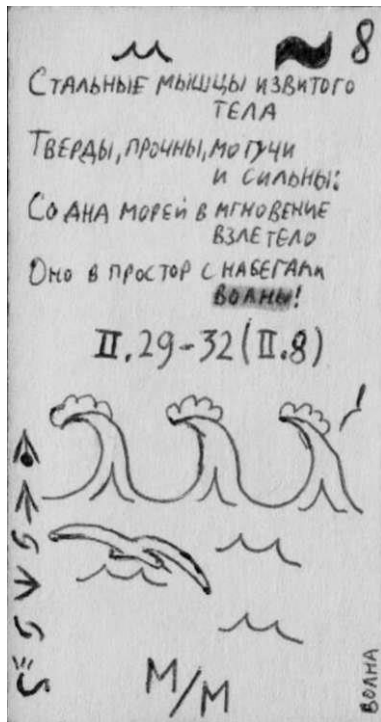 8
Стальные мышцы извитого
тела
Тверды, прочны, могучи
и сильны:
Со дна морей в мгновение
взлетело
Оно в простор с набегами
волны!
II.29-32(II.8)
М/М
ВОЛНА